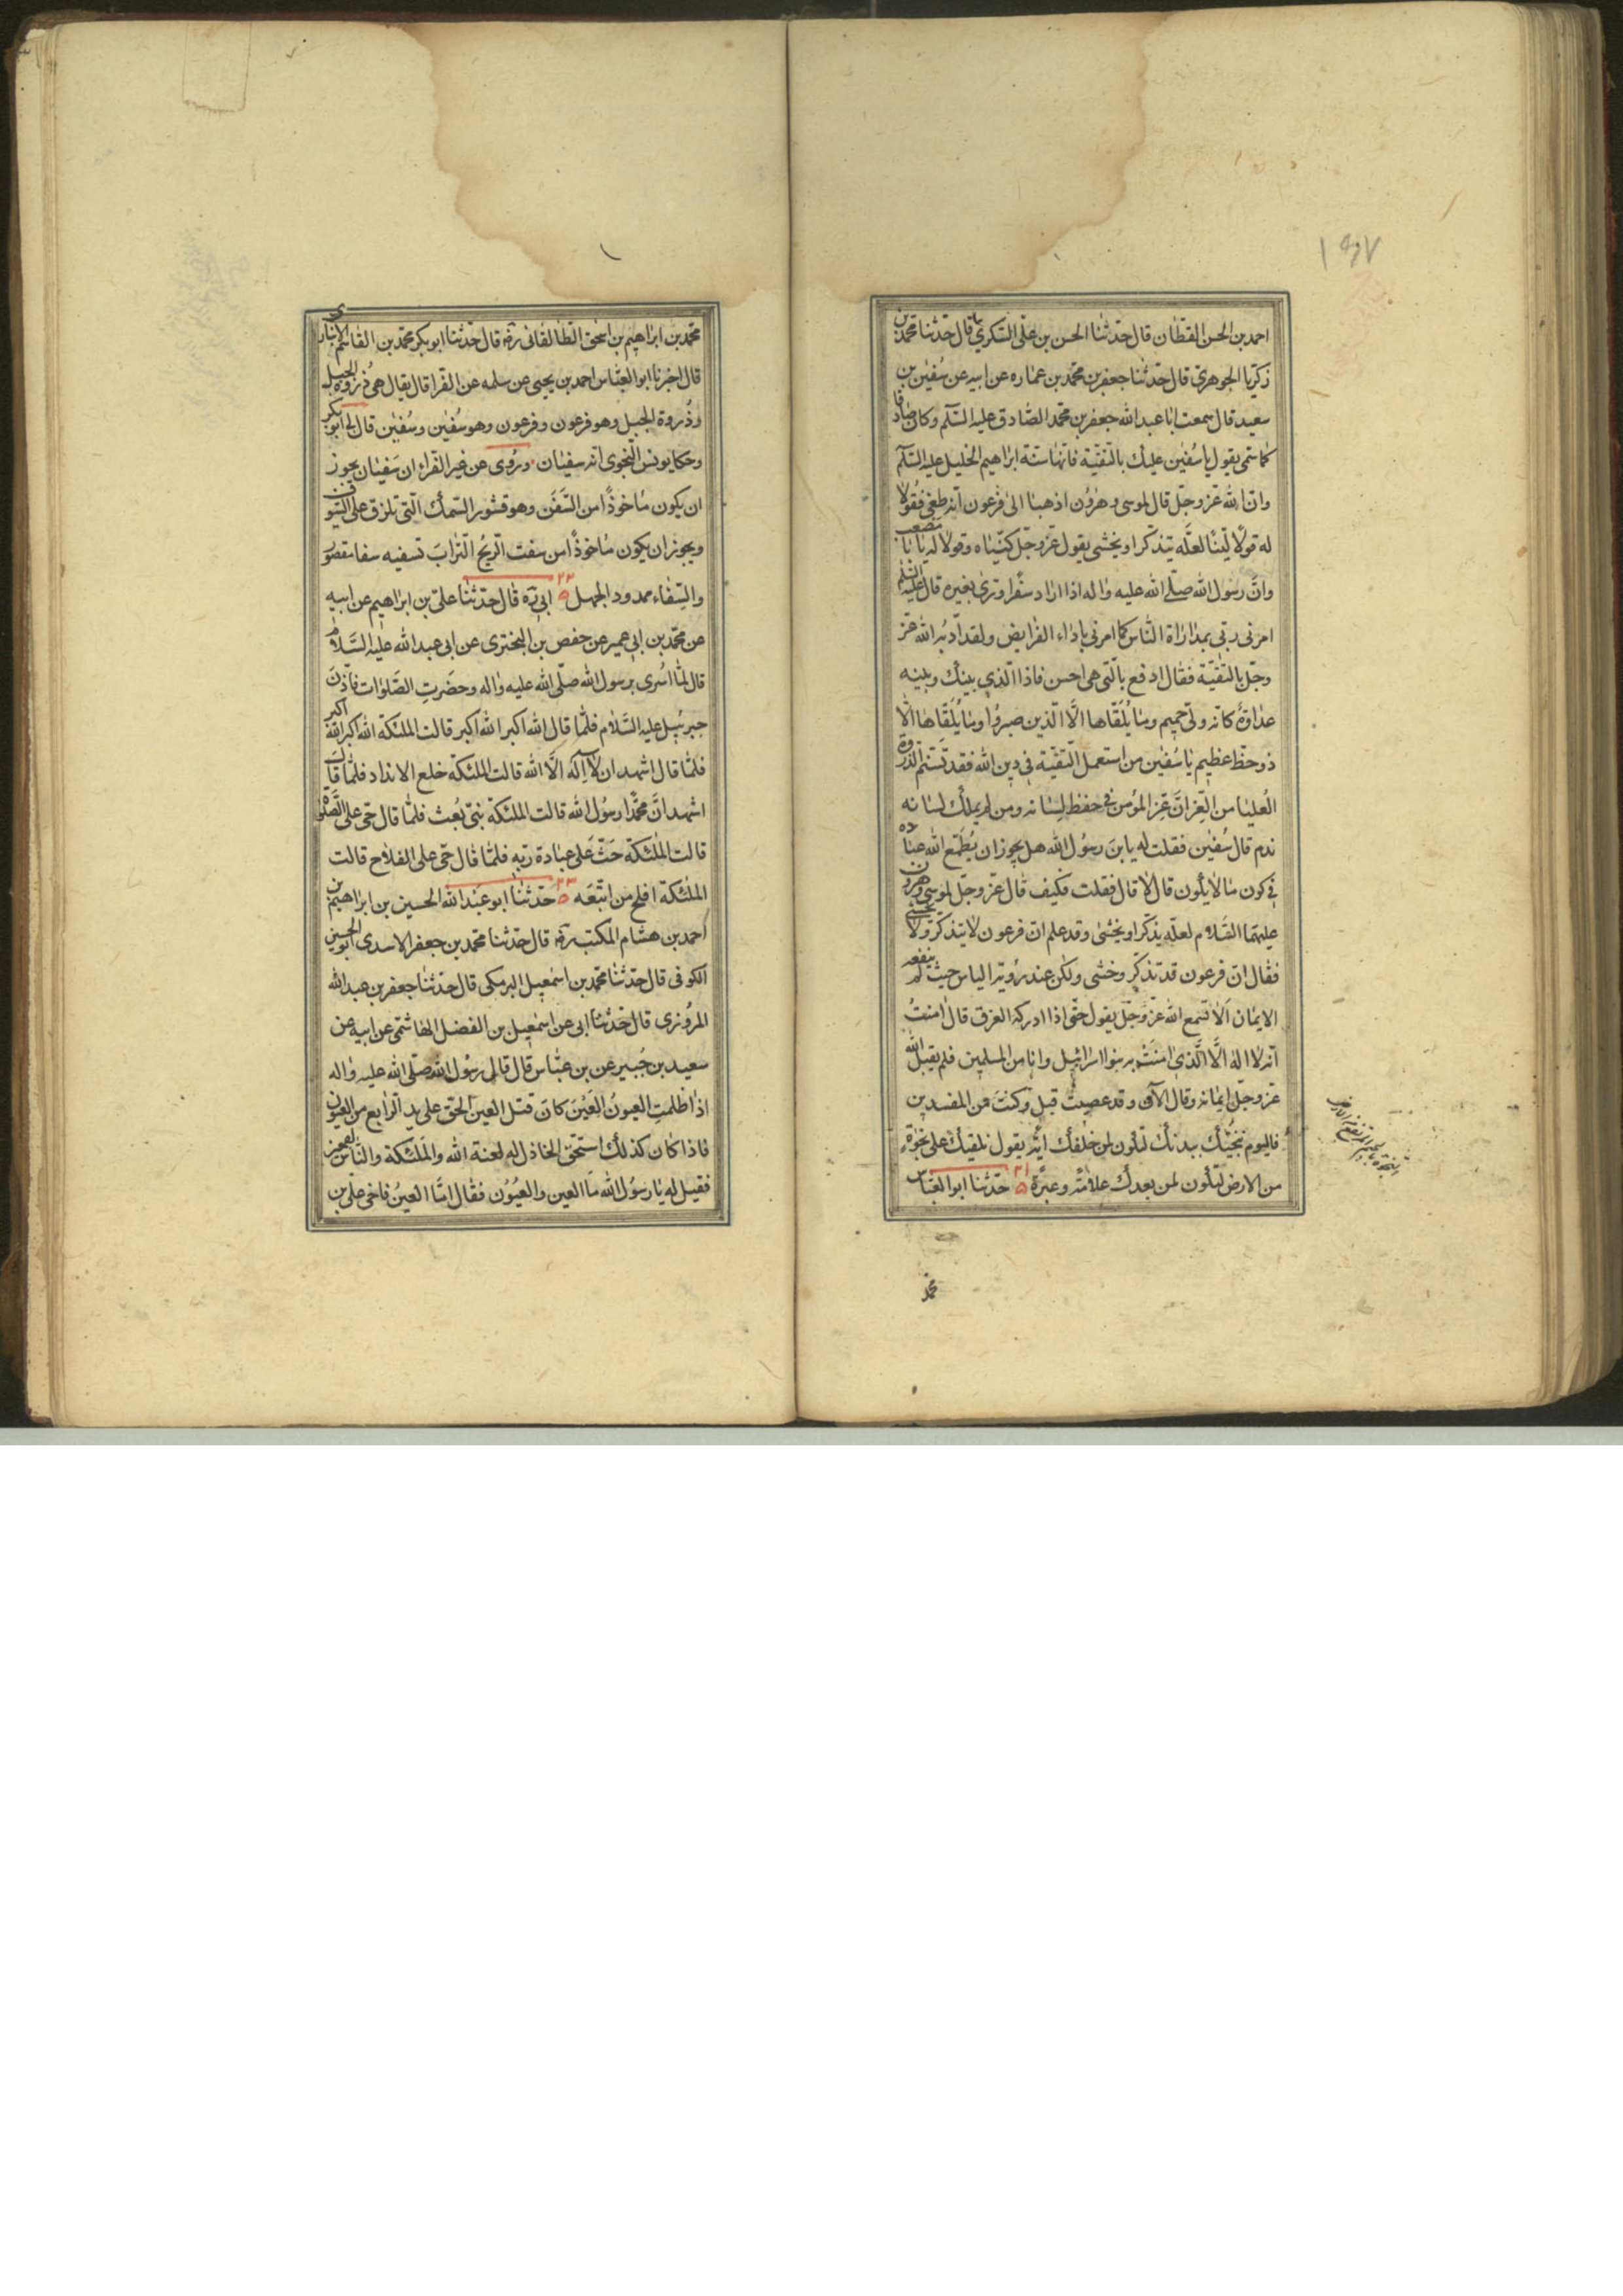 ۱۹۷
احمد بن الحسن القطان قال حدّثنا الحسن بن علی السکری قال حدّثنا محمّد بن
زکریا الجوهری قال حدّثنا جعفر بن محمّد بن عماره عن ابیه عن سُفین بن
سعید قال سمعت ابا عبد الله جعفر بن محمّد الصّادق علیه السّلم وکان صادقا
کما سمی یقول یا سُفین علیك بالتقیّة فانها سنّة ابراهیم الخلیل علیه السّلم
وان الله عز وجلّ قال لموسی وهرُون اذهبا الی فرعون انّه طغی فقولا
له قولاً لیّنًا لعلّه یتذکّر او یخشی یقول عزّ وجلّ کنّیاه وقولا له یا ابا مصعب
وانّ رسُول الله صلّی الله علیه واله اذا اراد سفرًا ورّی بغیره قال علیه السلم
امرنی ربّی بمداراة الناس کما امرنی باداء الفرایض ولقد ادّبه الله عزّ
وجلّ بالتقیّة فقال ادفع بالّتی هی احسن فاذا الّذی بینك وبینه
عداوة کانّه ولیّ حمیم وما یُلقّاها الّا الّذین صبرُوا وما یُلقّاها الّا
ذو حظّ عظیم یا سُفین من استعمل التقیّة فی دین الله فقد تسنّم الذّروة
العُلیا من العِزّ انّ عِزّ المؤمن فی حفظ لِسانه ومن لم یملك لسانه
ندم قال سُفین فقلت له یا بن رسُول الله هل یجوز ان یُطمّع الله عباده
فی کون ما لا یکون قال لا قال فقلت فکیف قال عزّ وجلّ لموسی وهرون
علیهما السّلام لعلّه یذکّر او یخشی وقد علم انّ فرعون لا یتذکّر ولا یخشی
فقال انّ فرعون قد تذکّر وخشی ولکن عند رؤیة الباس حیث لم ینفعه
الایمان الا تسمع الله عزّ وجلّ یقول حتّی اذا ادرکه الغرق قال امنتُ
انّه لا اله الّا الّذی امنت به بنوا اسرائیل وانا من المسلمین فلم یقبل الله
عزّ وجلّ ایمانه وقال الآن وقد عصیتَ قبل وکنتَ من المفسدین
فالیوم ننجّیك ببدنك لتکون لمن خلفك ایة یقول نلقیك علی نجوة
من الارض لتکون لمن بعدك علامةً وعبرةً ۲۱ حدّثنا ابو العبّاس
محمد
محمّد بن ابراهیم بن اسحق الطالقانی ره قال حدّثنا ابو بکر محمّد بن القاسم الانباری
قال اخبرنا ابو العباس احمد بن یحیی عن سلمه عن الفرا قال یقال هی ذِروة الجبل
وذُروة الجبل وهو فرعون وفرعون وهو سُفین وسُفین قال لی ابو بکر
وحکا یونس النّحوی انه سفیان ورُوی عن غیر الفراء ان سَفیان یجوز
ان یکون ماخوذًا من السّفَن وهو قشور السّمك الّتی تلزق علی السّیوف
ویجوز ان یکون ماخوذًا من سفت الرّیحُ التّرابَ تسفیه سفا مقصور
والسّفاء ممدود الجهل ۲۲ ابی ره قال حدّثنا علیّ بن ابراهیم عن ابیه
عن محمّد بن ابی عمیر عن حفص بن البختری عن ابی عبد الله علیه السّلام
قال لمّا اُسری برسول الله صلّی الله علیه واله وحضَرتِ الصّلوات فاذّنَ
جبرئیل علیه السّلام فلمّا قال الله اکبر الله اکبر قالت الملئکة الله اکبر الله اکبر
فلمّا قال اشهد ان لا اله الّا الله قالت الملئکة خلع الانداد فلمّا قال
اشهد انّ محمّدًا رسُول الله قالت الملئکة نبیّ بُعث فلمّا قال حیّ علی الصّلوة
قالت الملئکة حَثّ علی عبادة ربّه فلمّا قال حیّ علی الفلاح قالت
الملئکة افلح من اتّبعَه ۲۳ حدّثنا ابو عبد الله الحسین بن ابراهیم بن
احمد بن هشام المکتب ره قال حدّثنا محمّد بن جعفر الاسدی ابو الحسین
الکوفی قال حدّثنا محمّد بن اسمعیل البرمکی قال حدّثنا جعفر بن عبد الله
المروزی قال حدّثنا ابی عن اسمعیل بن الفضل الهاشمی عن ابیه عن
سعید بن جُبیر عن بن عبّاس قال قال رسُول الله صلّی الله علیه واله
اذا ظلمتِ العیونُ العَیْنَ کانَ قتل العین الحق علی ید الرّابع من العیون
فاذا کان کذلك استحقّ الخاذل له لعنة الله والملئکة والنّاس اجمعین
فقیل له یا رسُول الله ما العین والعیُون فقال امّا العینُ فاخی علیّ بن